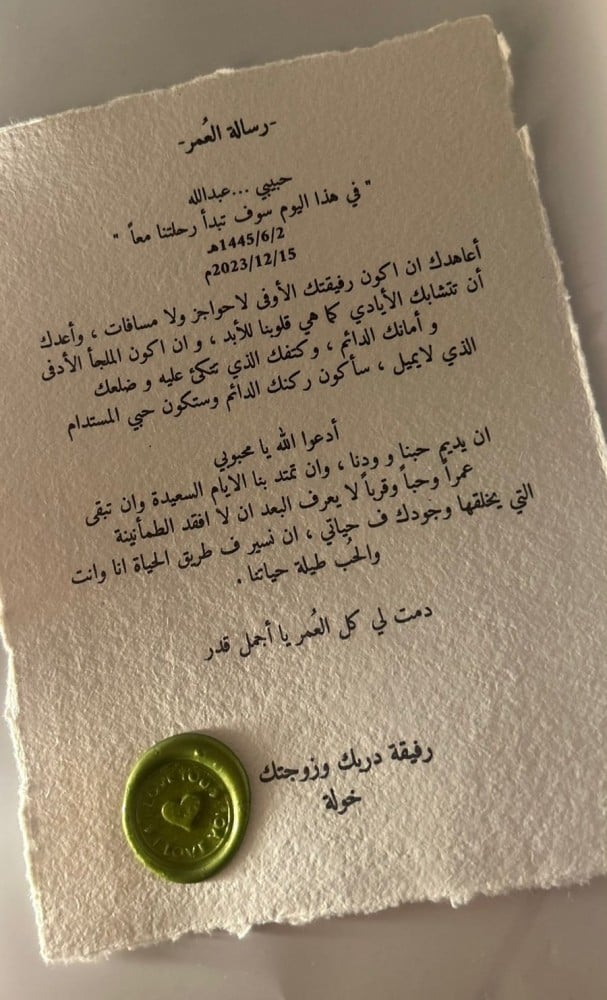 -رسالة العُمر-
حبيبي ...عبدالله
" في هذا اليوم سوف تبدأ رحلتنا معاً "
1445/6/2هـ
2023/12/15م
أعاهدك ان اكون رفيقتك الأوفى لاحواجز ولا مسافات ، وأعدك
أن تتشابك الأيادي كما هي قلوبنا للأبد ، و ان اكون الملجأ الأدفى
و أمانك الدائم ، وكتفك الذي تتكئ عليه و ضلعك
الذي لايميل ، سأكون ركنك الدائم وستكون حبي المستدام
أدعوا الله يا محبوبي
ان يديم حبنا و ودنا ، وان تمتد بنا الايام السعيدة وان تبقى
عمراً وحباً وقرباً لا يعرف البعد ان لا افقد الطمأنينة
التي يخلقها وجودك ف حياتي ، ان نسير ف طريق الحياة انا وانت
والحُب طيلة حياتنا .
دمت لي كل العُمر يا أجمل قدر
رفيقة دربك وزوجتك
خولة
I LOVE YOU